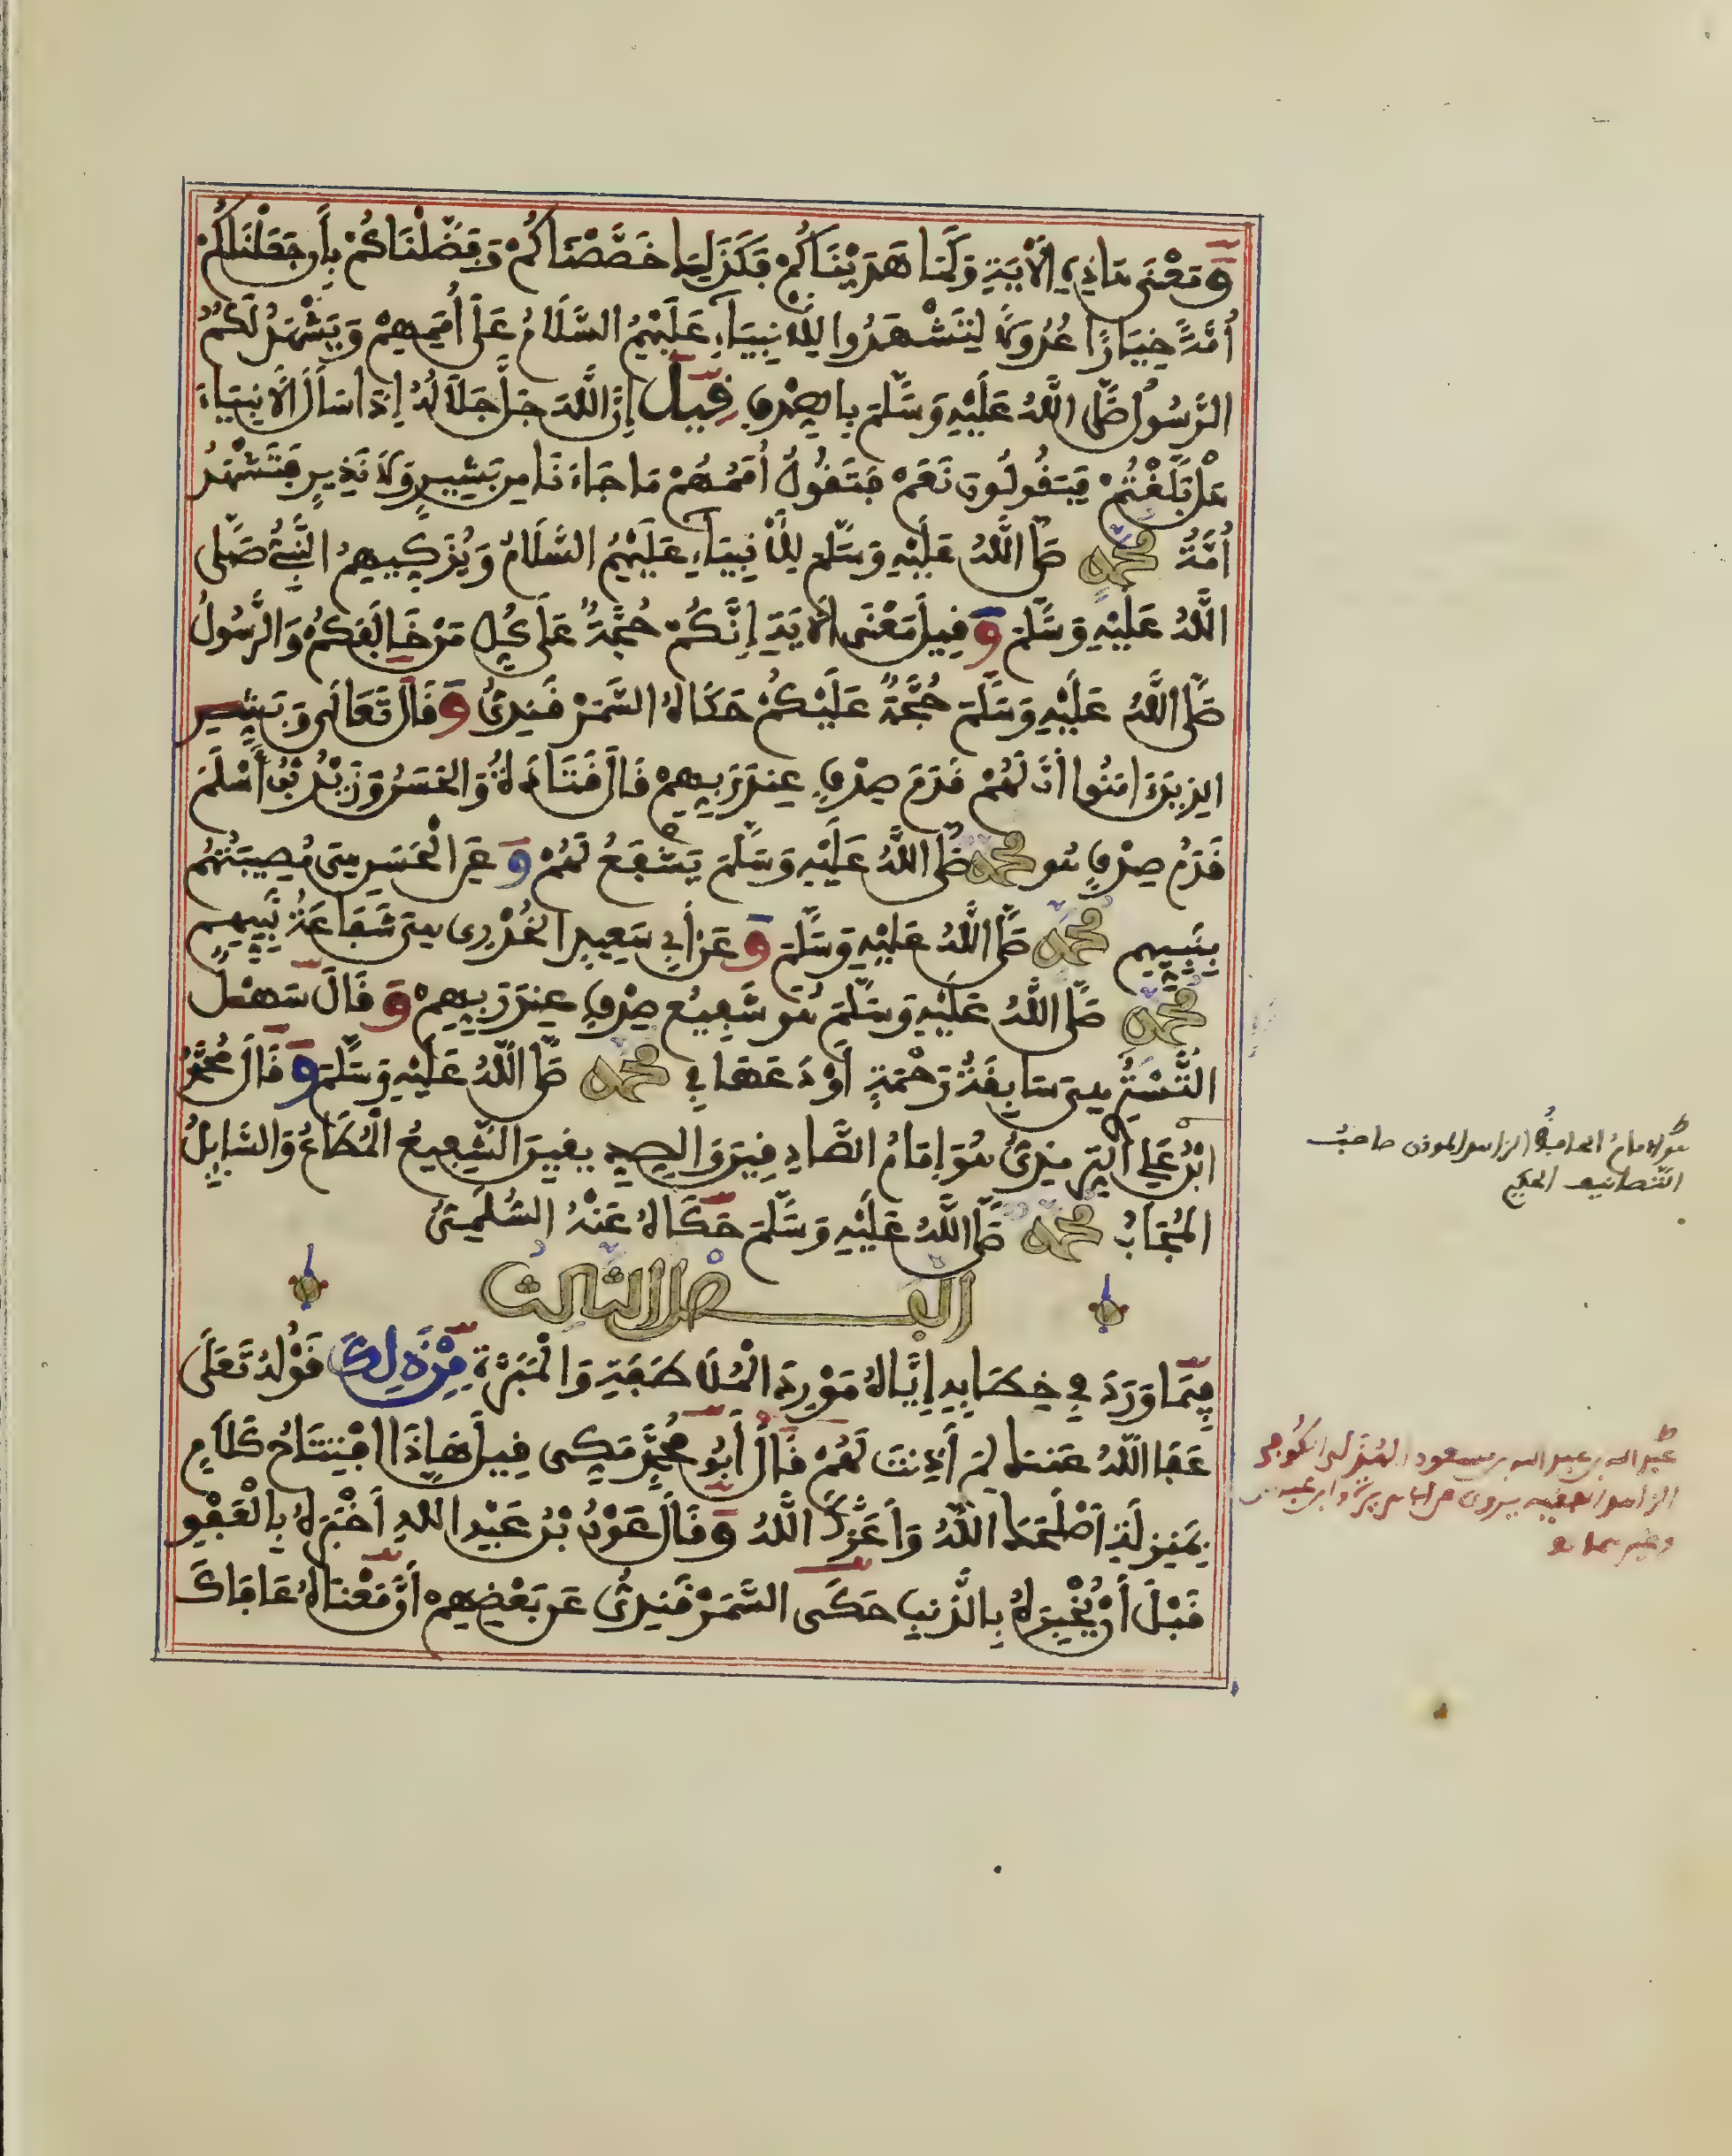 وَمَعْنَى هَاذِهِ الْآيَةِ وَكَمَا هَدَيْنَاكُمْ فَكَذَلِكَ خَصَّصْنَاكُمْ وَفَضَّلْنَاكُمْ بِأَن جَعَلْنَاكُمْ
أُمَّةً خِيَارًا عُدُولًا لِتَشْهَدُوا لِلْأَنْبِيَاءِ عَلَيْهِمُ السَّلَامُ عَلَى أُمَمِهِمْ وَيَشْهَدُ لَكُمُ
الرَّسُولُ صَلَّى اللَّهُ عَلَيْهِ وَسَلَّمَ بِالصِّدْقِ قِيلَ إِنَّ اللَّهَ جَلَّ جَلَالُهُ إِذَا سَأَلَ الْأَنْبِيَاءَ
هَلْ بَلَّغْتُمْ فَيَقُولُونَ نَعَمْ فَتَقُولُ أُمَمُهُمْ مَا جَاءَنَا مِن بَشِيرٍ وَلَا نَذِيرٍ فَتَشْهَدُ
أُمَّةُ مُحَمَّدٍ صَلَّى اللَّهُ عَلَيْهِ وَسَلَّمَ لِلْأَنْبِيَاءِ عَلَيْهِمُ السَّلَامُ وَيُزَكِّيهِمُ النَّبِيُّ صَلَّى
اللَّهُ عَلَيْهِ وَسَلَّمَ وَقِيلَ مَعْنَى الْآيَةِ إِنَّكُمْ حُجَّةٌ عَلَى كُلِّ مَنْ خَالَفَكُمْ وَالرَّسُولُ
صَلَّى اللَّهُ عَلَيْهِ وَسَلَّمَ حُجَّةٌ عَلَيْكُمْ حَكَاهُ السَّمَرْقَنْدِيُّ وَقَالَ تَعَالَى وَبَشِّرِ
الذِينَ ءَامَنُوا أَنَّ لَهُمْ قَدَمَ صِدْقٍ عِندَ رَبِّهِمْ قَالَ قَتَادَةُ وَالْحَسَنُ وَزَيْدُ بْنُ أَسْلَمَ
قَدَمُ صِدْقٍ هُوَ مُحَمَّدٌ صَلَّى اللَّهُ عَلَيْهِ وَسَلَّمَ يَشْفَعُ لَهُمْ وَعَنِ الْحَسَنِ هِيَ مُصِيبَتُهُمْ
بِنَبِيِّهِمْ مُحَمَّدٍ صَلَّى اللَّهُ عَلَيْهِ وَسَلَّمَ وَعَنْ أَبِي سَعِيدٍ الْخُدْرِيِّ هِيَ شَفَاعَةُ نَبِيِّهِمْ
مُحَمَّدٍ صَلَّى اللَّهُ عَلَيْهِ وَسَلَّمَ هُوَ شَفِيعُ صِدْقٍ عِندَ رَبِّهِمْ وَقَالَ سَهْلٌ
التُّسْتَرِيُّ هِيَ سَابِقَةُ رَحْمَةٍ أَوْدَعَهَا فِي مُحَمَّدٍ صَلَّى اللَّهُ عَلَيْهِ وَسَلَّمَ وَقَالَ مُحَمَّدُ
ابْنُ عَلِيٍّ التِّرْمِذِيُّ هُوَ إِمَامُ الصَّادِقِينَ وَالصِّدِّيقِينَ الشَّفِيعُ الْمُطَاعُ وَالسَّائِلُ
الْمُجَابُ مُحَمَّدٌ صَلَّى اللَّهُ عَلَيْهِ وَسَلَّمَ حَكَاهُ عَنْهُ السُّلَمِيُّ
الفصل الثالث
فِيمَا وَرَدَ فِي خِطَابِهِ إِيَّاهُ مَوْرِدَ الْمُلَاطَفَةِ وَالْمَبَرَّةِ مِنْ ذَلِكَ قَوْلُهُ تَعَلَى
عَفَا اللَّهُ عَنكَ لِمَ أَذِنتَ لَهُمْ قَالَ أَبُو مُحَمَّدٍ مَكِّيٌّ قِيلَ هَاذَا افْتِتَاحُ كَلَامٍ
بِمَنْزِلَةِ أَصْلَحَكَ اللَّهُ وَأَعَزَّكَ اللَّهُ وَقَالَ عَوْنُ بْنُ عَبْدِ اللهِ أَخْبَرَهُ بِالْعَفْوِ
قَبْلَ أَنْ يُخْبِرَهُ بِالذَّنبِ حَكَى السَّمَرْقَنْدِيُّ عَن بَعْضِهِمْ أَنَّ مَعْنَاهُ عَافَاكَ
هو الامام الحافظ الزاهد الموذن صاحب
التصانيف الحكيم
عبد الله بن عبد الله بن مسعود الهذلي الكوفي
الزاهد الفقيه يروى عن